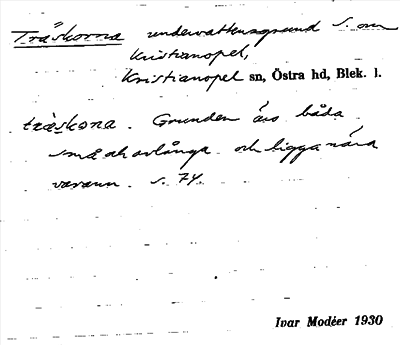 Träskorna undervattensgrund S. om
Kristianopel,
Kristianopel sn, Östra hd, Blek. l.
träskona. Grunden äro båda
små ok avlånga och ligga nära
varann. s. 74.
Ivar Modéer 1930